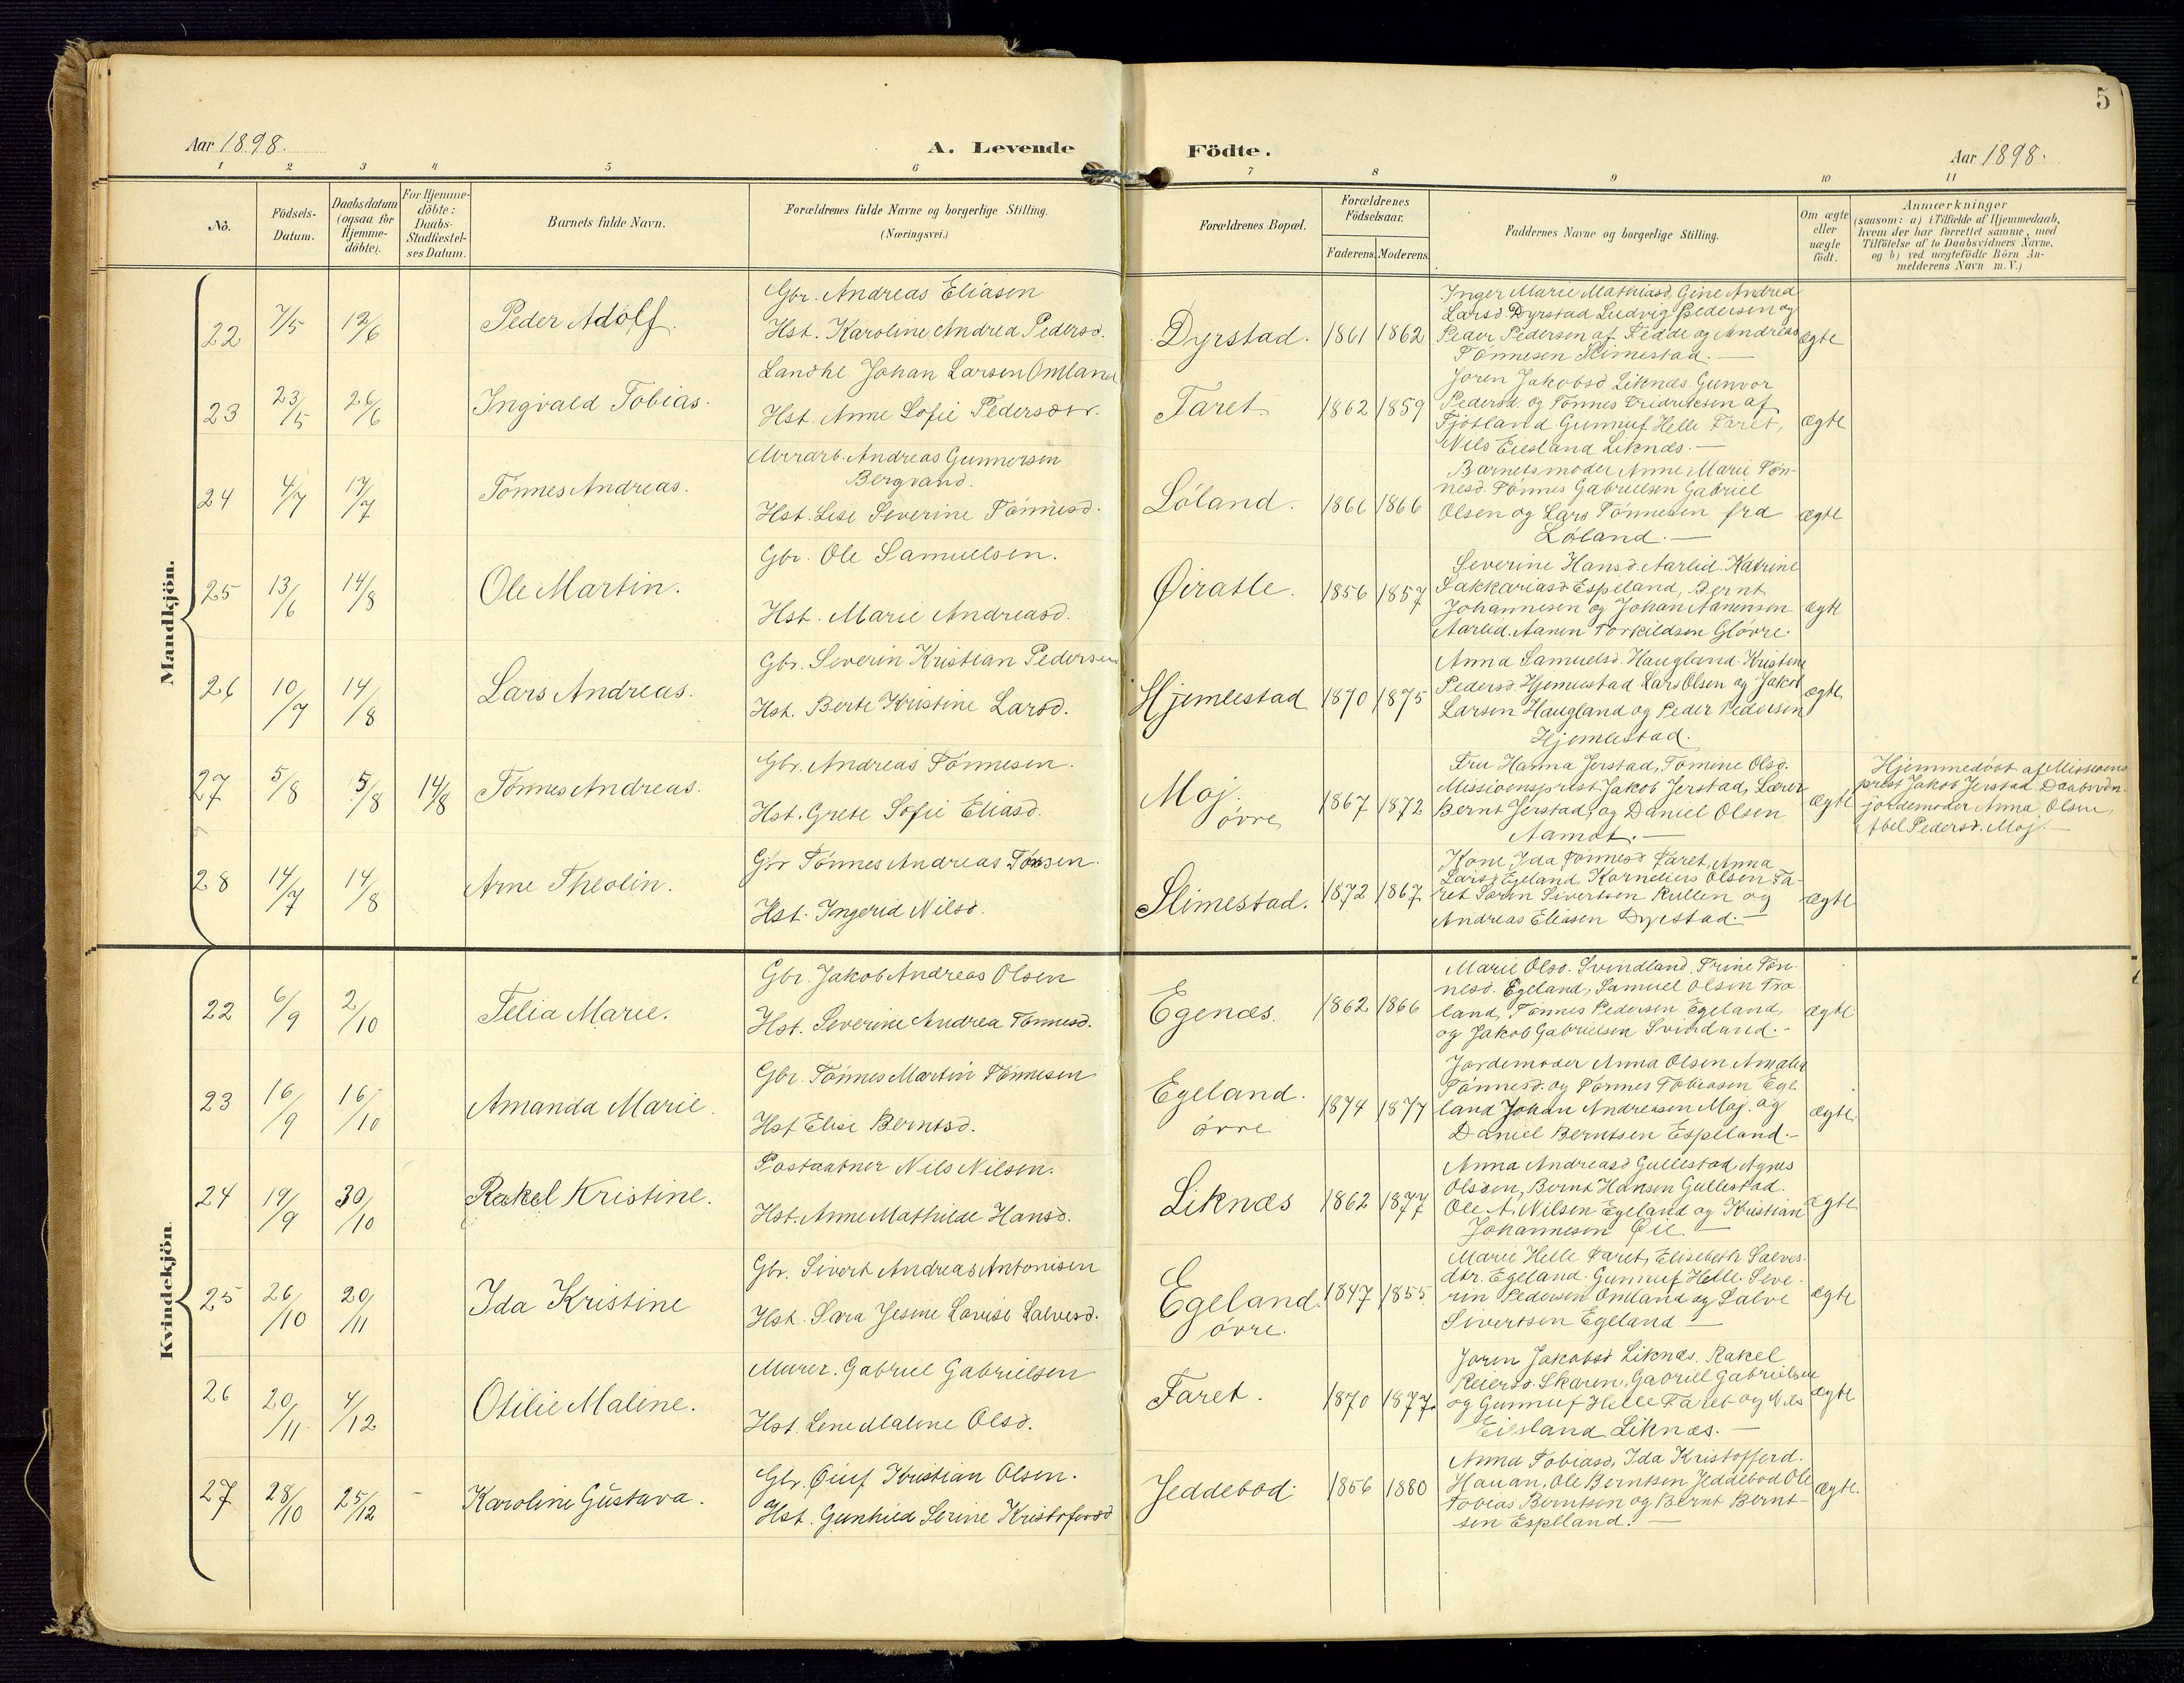 5
Aar 1898.
A. Levende Födte.
Aar 1898.
1 2 3 4 5 6 7 8 9 10 11
No.
Födsels-
Datum.
Daabsdatum
(ogsaa for
Hjemme-
döbte).
For Hjemme-
döbte:
Daabs-
Stadfæstel-
ses Datum.
Barnets fulde Navn.
Forældrenes fulde Navne og borgerlige Stilling.
(Næringsvei.)
Forældrenes Bopæl.
Forældrenes
Födselsaar.
Faderens. Moderens.
Faddernes Navne og borgerlige Stilling.
Om ægte
eller
uægte
födt.
Anmærkninger
(saasom: a) i Tilfælde af Hjemmedaab,
hvem der har forrettet samme, med
Tilföielse af to Daabsvidners Navne,
og b) ved uægtefödte Börn An-
melderens Navn m. V.)
Mandkjön.
22 7/5 12/6 Peder Adolf.
Gbr. Andreas Eliasen
Hst. Karoline Andrea Pedersd.
Dyrstad. 1861 1862
Inger Marie Mathiasd, Gine Andrea
Larsd Dyrstad Ludvig Pedersen og
Peder Pedersen af Fedde og Andreas
Tönnesen Slimestad. —
ægte
23 23/5 26/6 Ingvald Tobias.
Landhl Johan Larsen Omland
Hst. Anne Sofie Pedersdtr.
Faret. 1862 1859
Joren Jakobsd Liknæs. Gunvor
Pedersd. og Tönnes Fredriksen af
Fjotland. Gunnuf Helle Faret,
Nils Eiesland Liknæs. —
ægte
24 4/7 17/7 Tönnes Andreas.
Murarb. Andreas Gunnersen
Bergvand.
Hst. Lise Severine Tönnesd.
Löland. 1866 1866
Barnets moder Anne Marie Tön-
nesd. Tönnes Gabrielsen Gabriel
Olsen og Lars Tönnesen fra
Löland. —
ægte
25 13/6 14/8 Ole Martin.
Gbr. Ole Samuelsen.
Hst. Marie Andreasd.
Øiratle. 1856 1857
Severine Hansd. Aarlid. Katrine
Sakkariasd Espeland, Bernt
Johannesen og Johan Aanensen
Aarlid. Aanen Torkildsen Glövre.
ægte
26 10/7 14/8 Lars Andreas.
Gbr. Severin Kristian Pedersen
Hst. Berte Kristine Larsd.
Hjemlestad 1870 1875
Anna Samuelsd. Haugland. Kristine
Pedersd. Hjemlestad Lars Olsen og Jakob
Larsen Haugland og Peder Pedersen
Hjemlestad.
ægte.
27 5/8 5/8 14/8 Tönnes Andreas.
Gbr. Andreas Tönnesen.
Hst. Grete Sofie Eliasd.
Moj.
övre 1867 1872
Fru Hanna Jerstad, Tomine Olsd.
Missionsprest Jakob Jerstad, Lærer
Bernt Jerstad, og Daniel Olsen
Aamot. —
ægte
Hjemmedöbt af Missions
prest Jakob Jerstad. Daabsvdn.
jordemoder Anna Olsen,
Abel Pedersd. Moj. —
28 14/7 14/8 Arne Theolin.
Gbr Tönnes Andreas Tönsen.
Hst. Ingerid Nilsd.
Slimestad. 1872 1867
Kone, Ida Tönnesd Faret, Anna
Larsd Egeland, Kornelius Olsen Fa-
ret Sören Sivertsen Rullen og
Andreas Eliasen Dyrstad. —
ægte
Kvindekjön.
22 6/9 2/10 Telia Marie.
Gbr. Jakob Andreas Olsen
Hst. Severine Andrea Tönnesd.
Egenæs. 1862 1866
Marie Olsd. Svindland, Trine Tön-
nesd. Egeland, Samuel Olsen Tro
land, Tönnes Pedersen Egeland,
og Jakob Gabrielsen Svindland. -
ægte
23 16/9 16/10 Amanda Marie.
Gbr. Tönnes Martin Tönnesen
Hst Elise Berntsd.
Egeland.
övre 1874 1877
Jordemoder Anna Olsen Amalia
Tönnesd. og Tönnes Tobiasen Ege-
land Johan Andreasen Moj. og
Daniel Berntsen Espeland. -
ægte.
24 19/9 30/10 Rakel Kristine.
Postaabner Nils Nilsen.
Hst. Anne Mathilde Hansd.
Liknæs 1862 1877
Anna Andreasd Gullestad, Agnes
Olsen, Bernt Hansen Gullestad.
Ole A. Nilsen Egeland og Kristian
Johannesen Öie —
ægte
25 26/10 20/11 Ida Kristine
Gbr. Sivert Andreas Antonisen
Hst. Sara Jesine Lovise Salvesd.
Egeland.
övre. 1847 1855
Marie Helle Faret, Elisebeth Salves-
dtr. Egeland. Gunnuf Helle. Seve-
rin Pedersen Omland og Salve
Sivertsen Egeland —
ægte
26 20/11 4/12 Otilie Maline.
Murer. Gabriel Gabrielsen
Hst. Lene Maline Olsd.
Faret. 1870 1877.
Joren Jakobsd Liknæs. Rakel
Reiersd. Skaren, Gabriel Gabrielsen
og Gunnuf Helle Faret og Nils
Eiesland Liknæs. —
ægte
27 28/10 25/12 Karoline Gustava.
Gbr. Öiuf Kristian Olsen.
Hst. Gunhild Serine Kristofersd
Jeddebod. 1856 1880
Anna Tobiasd, Ida Kristofferd.
Hauan, Ole Berntsen Jeddebod Ole
Tobias Berntsen og Bernt Bernt-
sen Espeland. —
ægte.